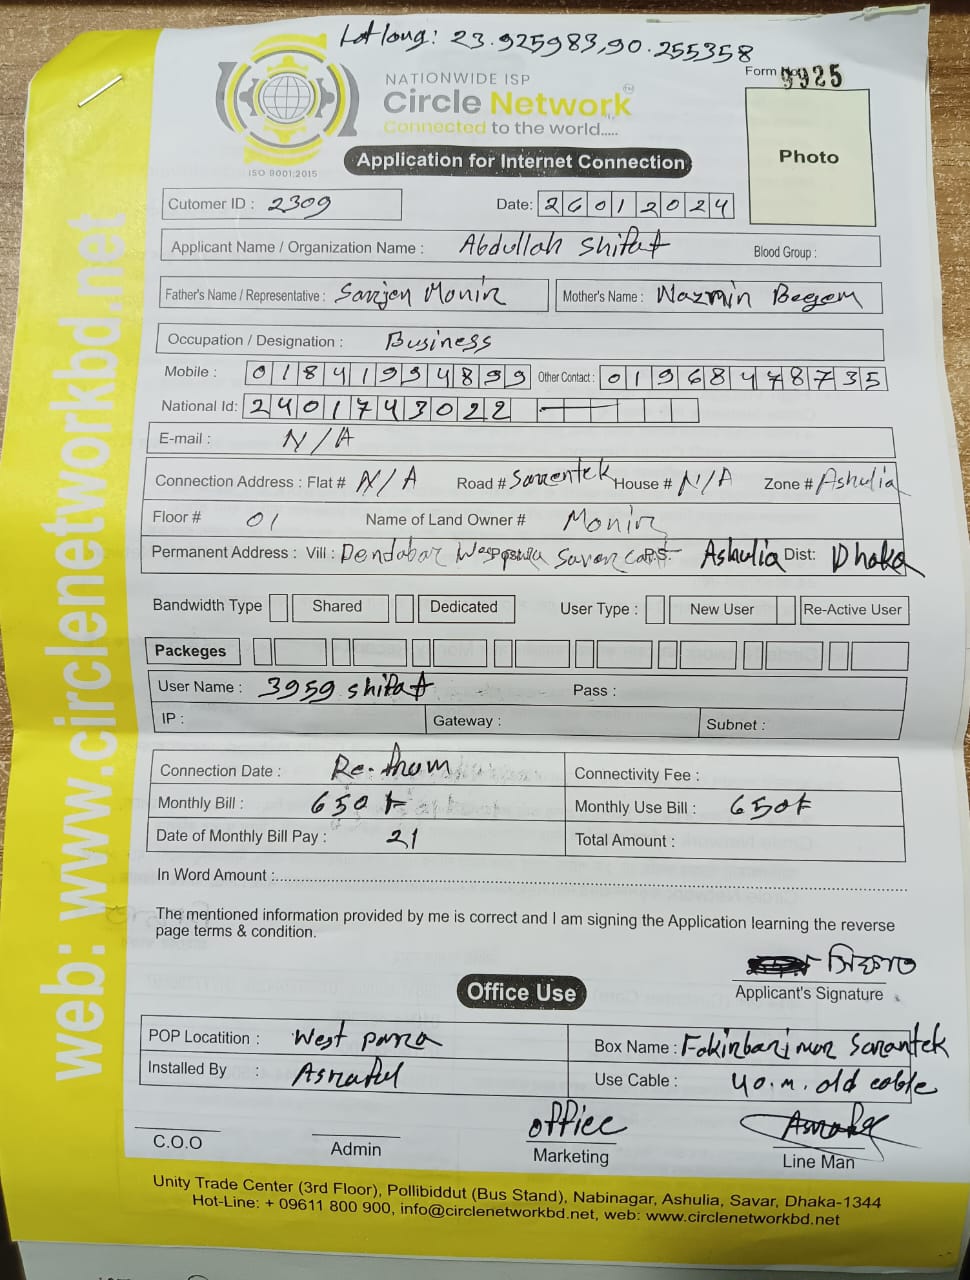 Lat long: 23.925983,90.255358
NATIONWIDE ISP
Form No 9925
Circle Network TM
Connected to the world.....
ISO 9001:2015
Application for Internet Connection
Photo
Cutomer ID : 2309 Date: 26012024
Applicant Name / Organization Name : Abdullah Shifat Blood Group :
Father's Name / Representative : Monir Mother's Name : Nazmin Begom
Occupation / Designation : Business
Mobile : 01841994899 Other Contact : 01968478735
National Id: 2401743022
E-mail : N/A
Connection Address : Flat # N/A Road # House # N/A Zone # Ashulia
Floor # 01 Name of Land Owner # Monir
Permanent Address : Vill : Dendabar P.S. Ashulia Dist: Dhaka
Bandwidth Type Shared Dedicated User Type : New User Re-Active User
Packeges
User Name : 3959 shifat Pass :
IP : Gateway : Subnet :
Connection Date : Connectivity Fee :
Monthly Bill : 650 Monthly Use Bill : 650
Date of Monthly Bill Pay : 21 Total Amount :
In Word Amount :
The mentioned information provided by me is correct and I am signing the Application learning the reverse
page terms & condition.
Applicant's Signature
Office Use
POP Locatition : West para Box Name : Fokirbari mor Sarantek
Installed By : Asraful Use Cable : 40.m. old cable
office
C.O.O Admin Marketing Line Man
Unity Trade Center (3rd Floor), Pollibiddut (Bus Stand), Nabinagar, Ashulia, Savar, Dhaka-1344
Hot-Line: + 09611 800 900, info@circlenetworkbd.net, web: www.circlenetworkbd.net
web: www.circlenetworkbd.net